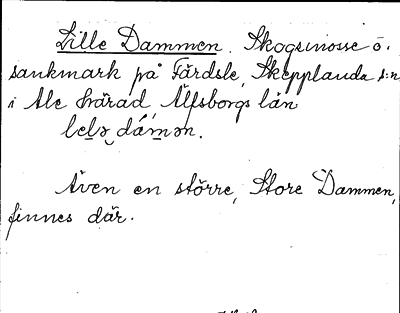 Lille Dammen. Skogsmosse o.
sankmark på Färdsle, Skepplanda s:n
i Ale härad, Älfsborgs län
Även en större, Store Dammen,
finnes där.